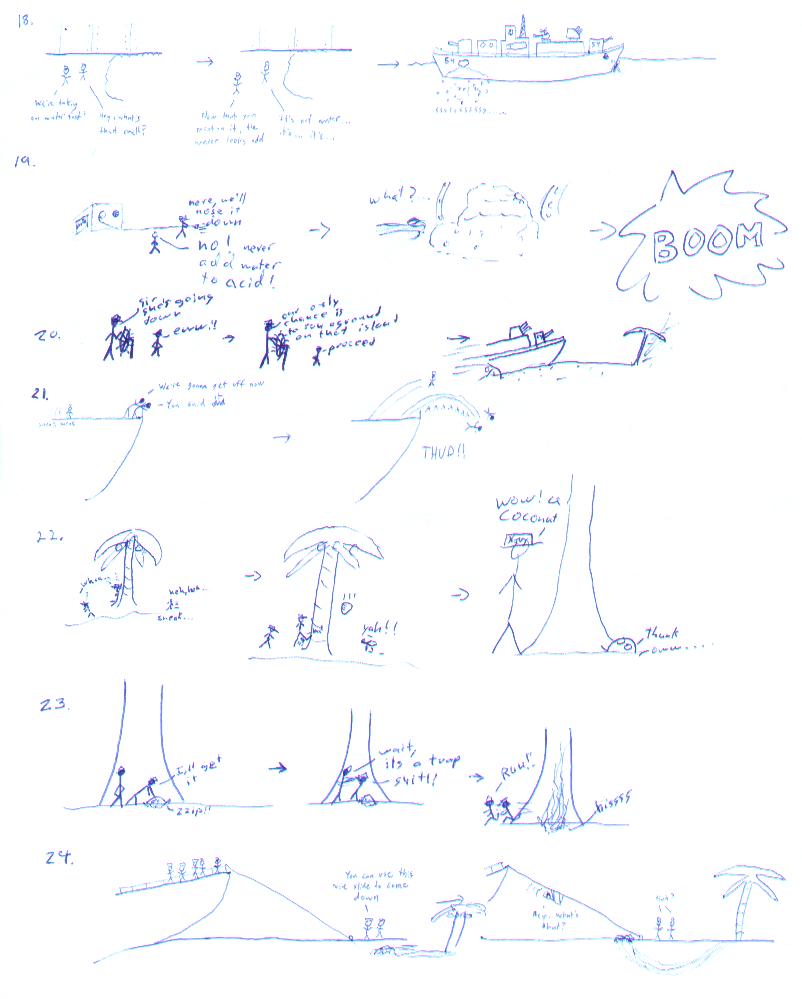 18.
We're taking
on water sarge!
Hey, what's
that smell?
Now that you
mention it, the
water looks odd
It's not water...
it's... it's...
54
54
19.
here, we'll
hose it
down
no! never
add water
to acid!
what?...
BOOM
20.
sir
she's going
down
eww!!
our only
chance is
to run aground
on that island
proceed
21.
We're gonna get off now
You said
THUD!!
22.
whoa...
heh, heh...
sneak...
!!!
yah!!
wow! a
coconut
thunk
oww....
23.
I'll get
it
zzip!!
wait,
its a trap
shit!!
Run!!
hissss
24.
You can use this
wire slide to come
down
Hey, what's
that?
huh?